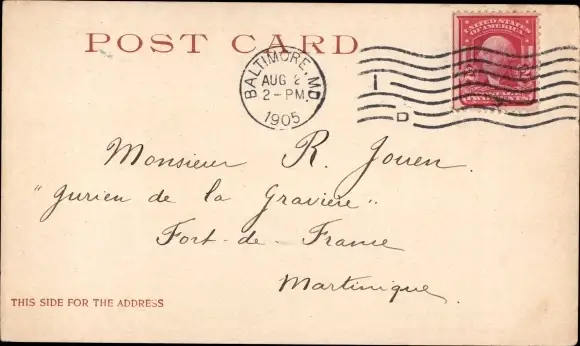 POST CARD
BALTIMORE, MD.
AUG 2
2-PM
1905
1
D
UNITED STATES
OF AMERICA
2 2
TWO CENTS
Monsieur R. Jouen.
"Jurien de la Gravière"
Fort-de-France
Martinique.
THIS SIDE FOR THE ADDRESS